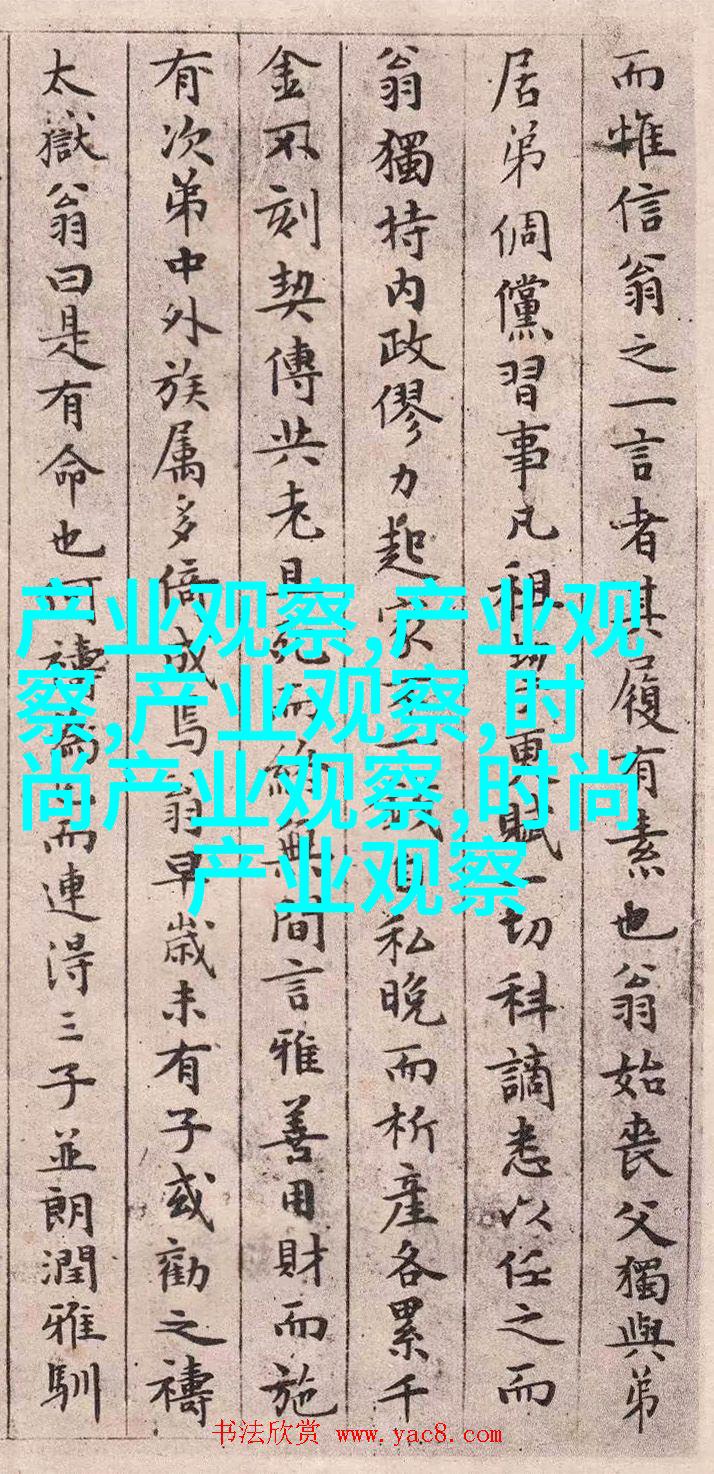 而惟信翁之一言者其履有素也翁始喪父獨與弟
居弟倜儻習事凡租更賦一切科謫悉以任之而
翁獨持内政僇力起家不自私晚而析產各累千
金不刻契傳共老且死而無間言雅善用財而施
有次第中外族属多倍成焉翁早歳未有子或勸之禱
太嶽翁曰是有命也何禱為而連得三子並朗潤雅馴
产业观察,产业观
察,产业观察,时
尚产业观察,时尚
产业观察
书法欣赏 www.yac8.com